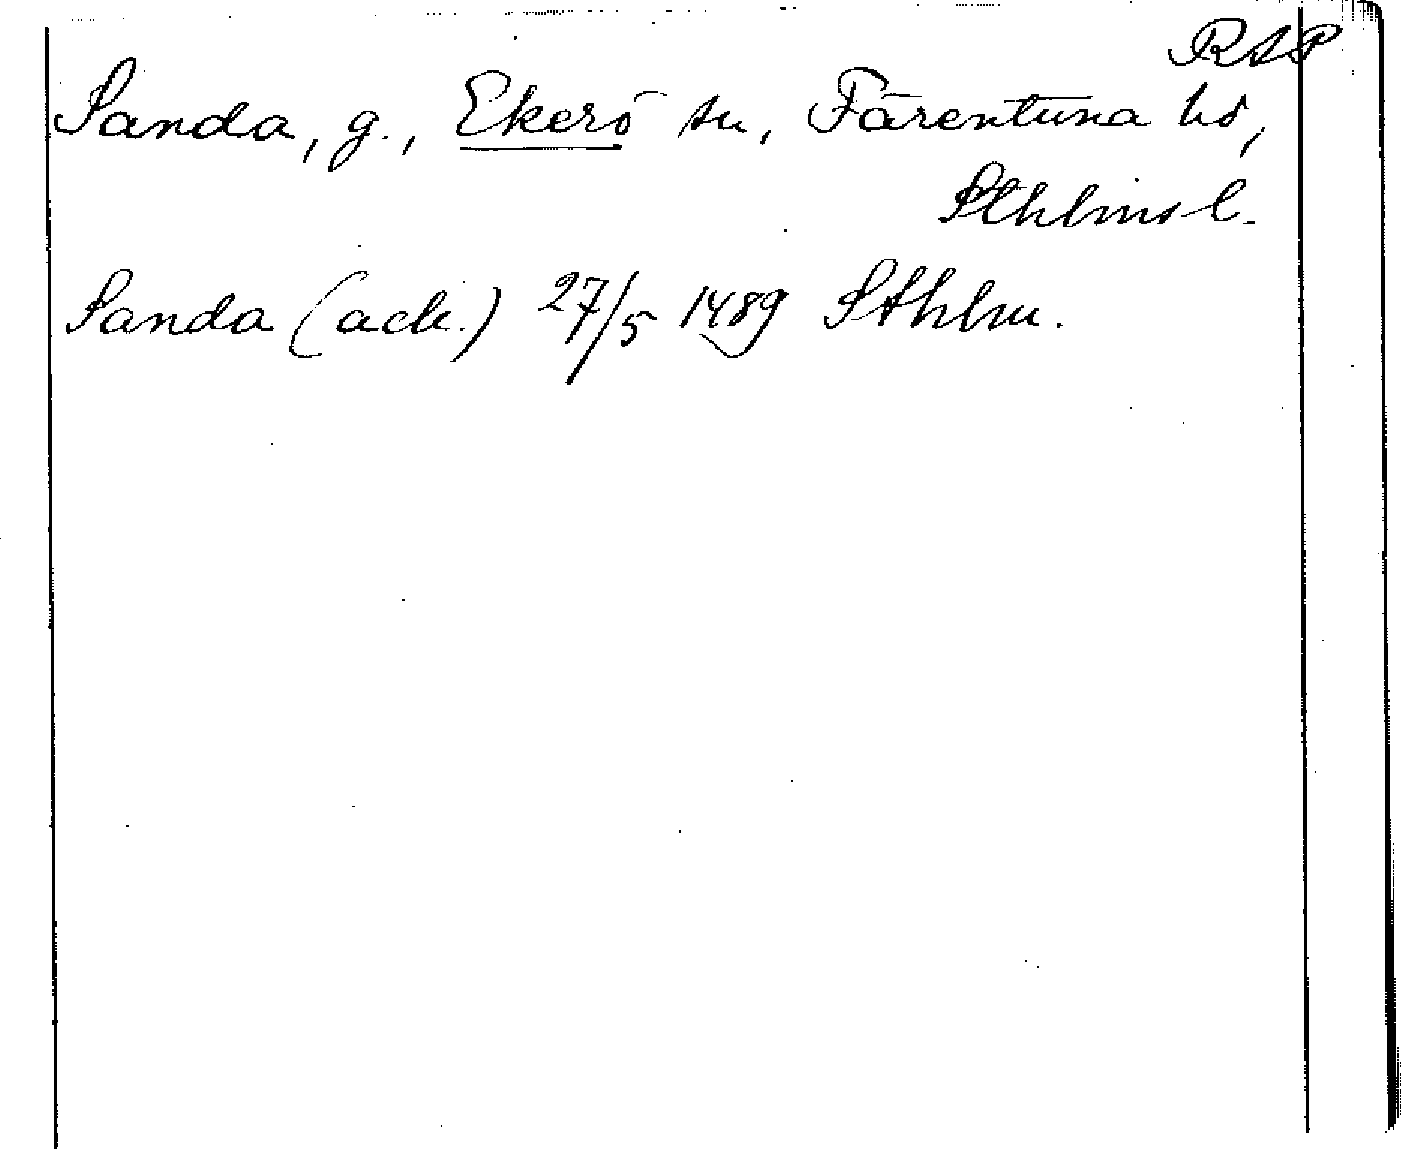 RAP
Sanda, g., Ekerö sn, Färentuna hd,
Sthlms l.
Sanda (ack.) 27/5 1489 Sthlm.